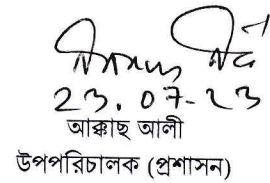 23.07-23
আক্কাছ আলী
উপপরিচালক (প্রশাসন)